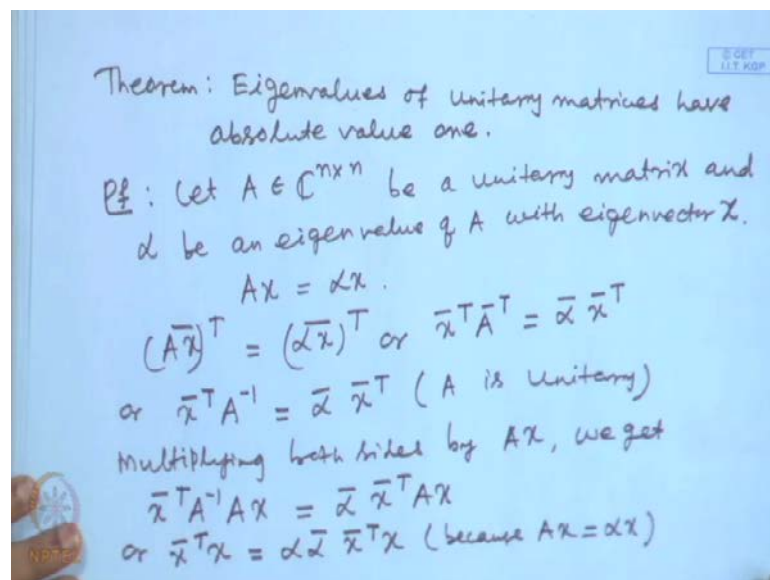 © CET
I.I.T. KGP
Theorem: Eigenvalues of unitary matrices have
absolute value one.
Pf: Let A ∈ ℂ^{n×n} be a unitary matrix and
α be an eigenvalue of A with eigenvector x.
Ax = αx.
(A̅x̅)ᵀ = (α̅x̅)ᵀ or x̅ᵀA̅ᵀ = α̅ x̅ᵀ
or x̅ᵀA⁻¹ = α̅ x̅ᵀ (A is unitary)
Multiplying both sides by Ax, we get
x̅ᵀA⁻¹Ax = α̅ x̅ᵀAx
or x̅ᵀx = αα̅ x̅ᵀx (because Ax = αx)
NPTEL